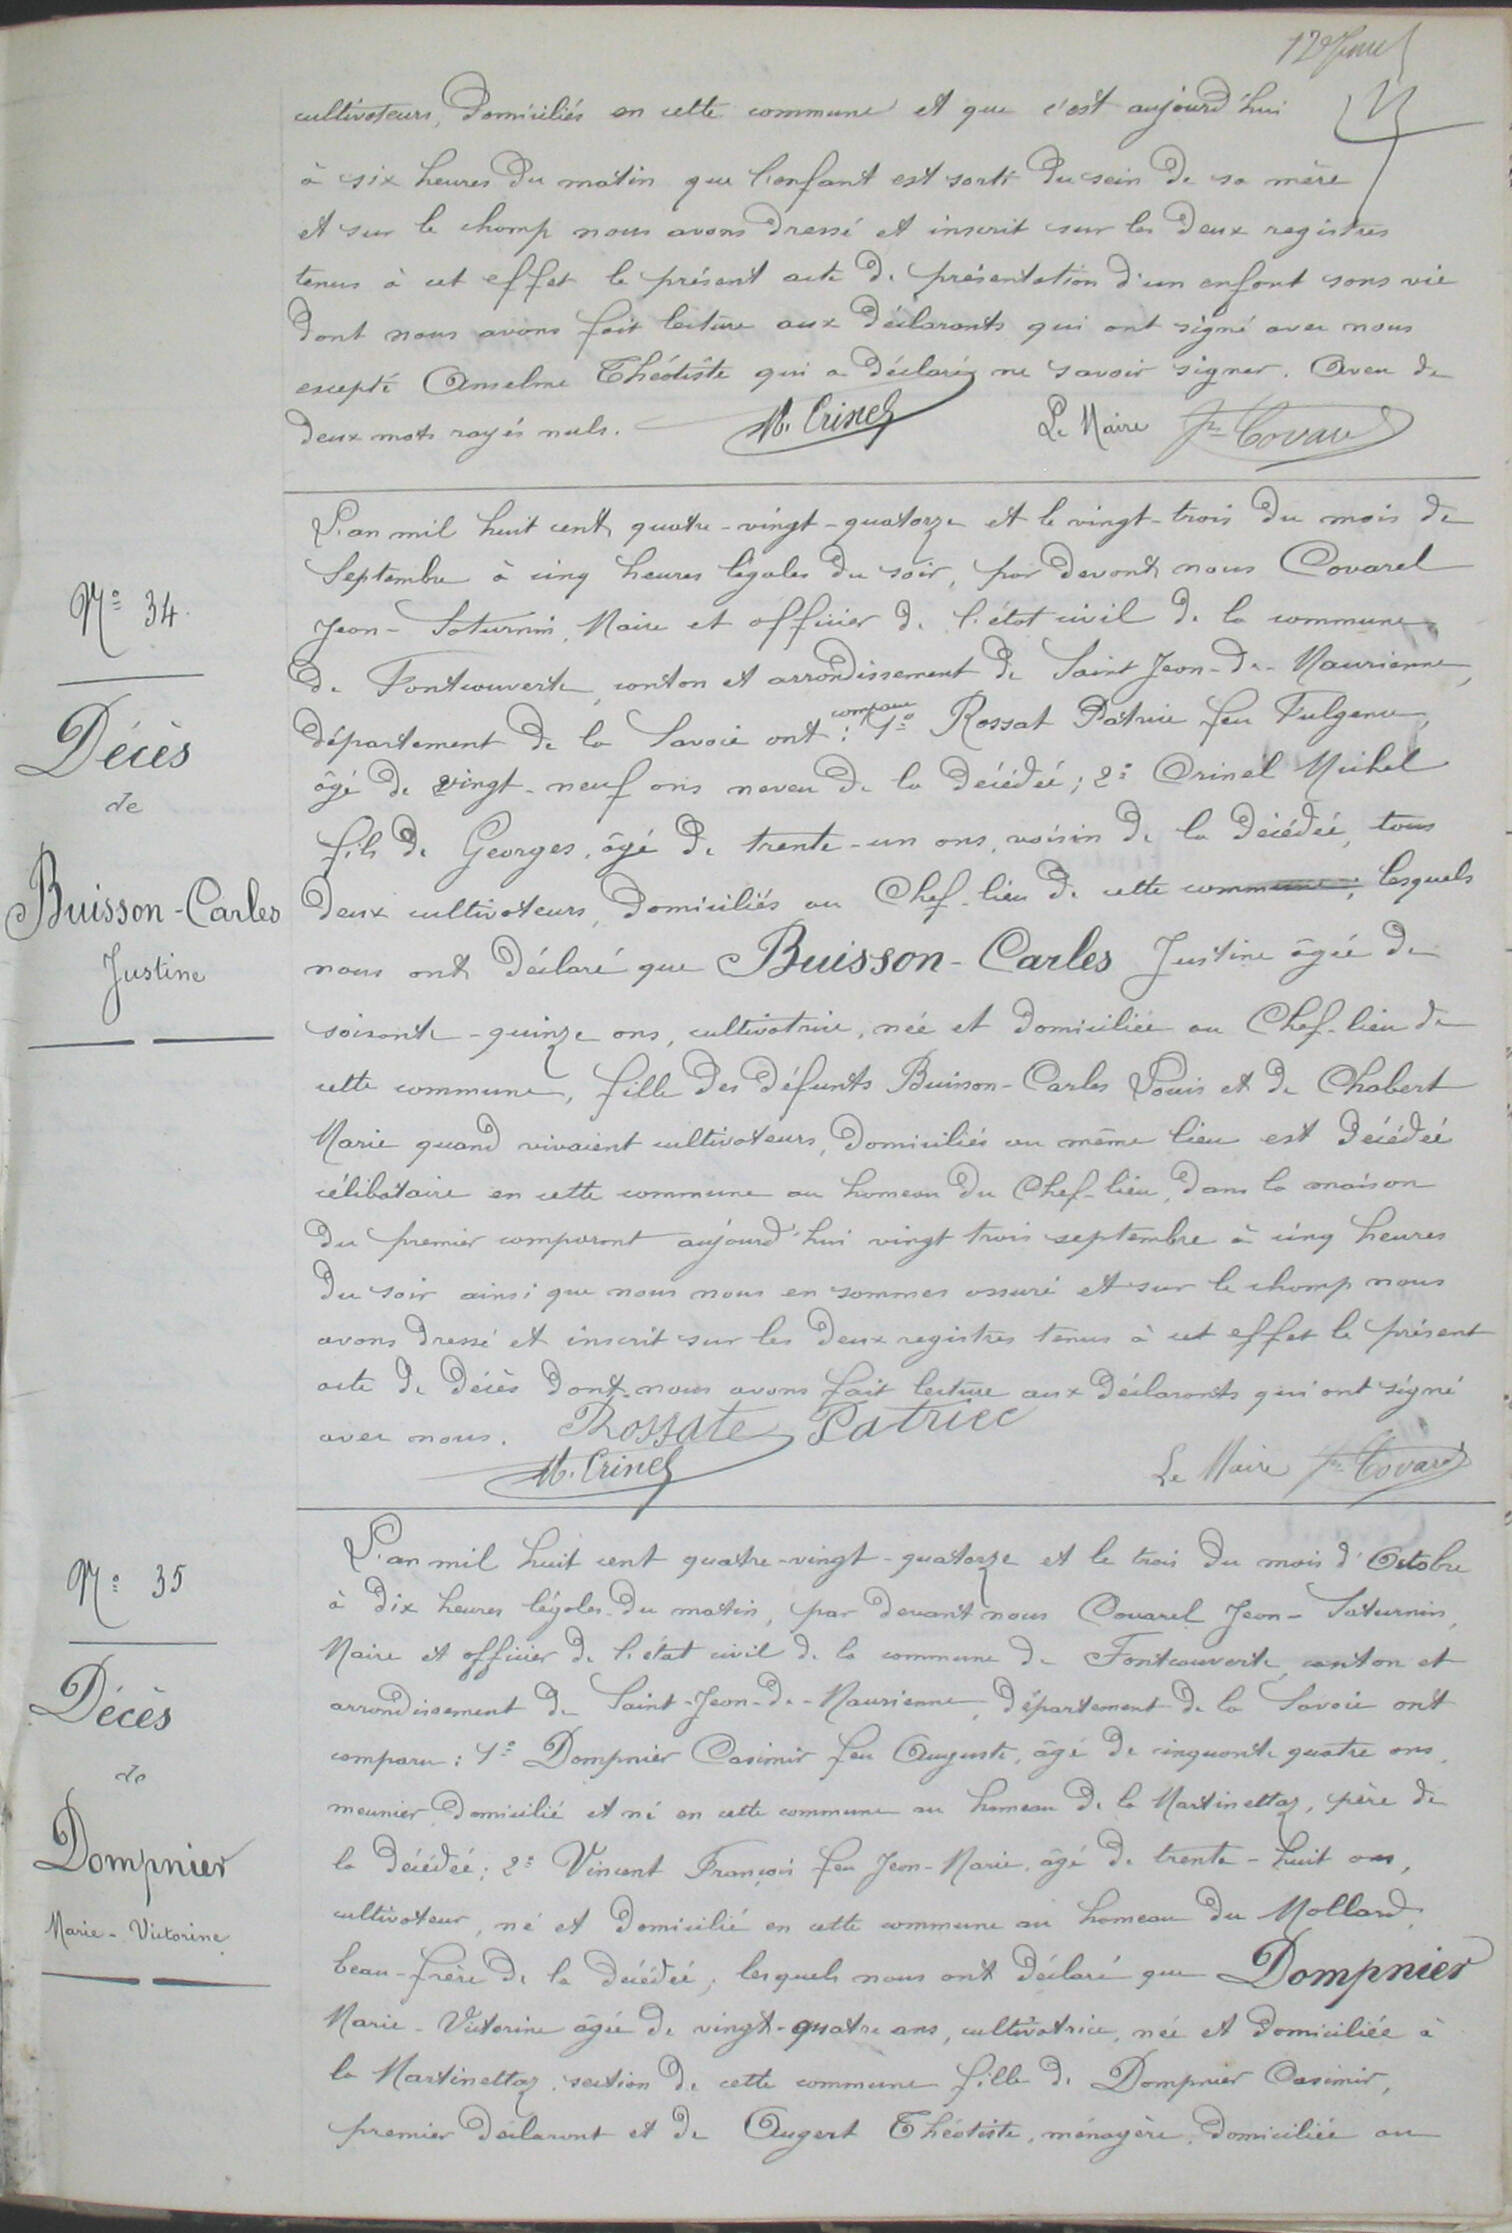 cultivateurs, domiciliés en cette commune et que c'est aujourd'hui
à six heures du matin que l'enfant est sorti du sein de sa mère
et sur le champ nous avons dressé et inscrit sur les deux registres
tenus à cet effet le présent acte de présentation d'un enfant sans vie
dont nous avons fait lecture aux déclarants qui ont signé avec nous
excepté Anselme Théotiste qui a déclaré ne savoir signer. Aveu de
deux mots rayés nuls. M. Crinel Le Maire Jn Covarel
N° 34.
Décès
de
Buisson-Carles
Justine
L'an mil huit cent quatre-vingt-quatorze et le vingt-trois du mois de
Septembre à cinq heures légales du soir, par devant nous Covarel
Jean-Saturnin, Maire et officier de l'état civil de la commune
de Fontcouverte, canton et arrondissement de Saint Jean-de-Maurienne,
département de la Savoie ont comparu : 1° Rossat Patrice feu Fulgence,
âgé de vingt-neuf ans neveu de la décédée ; 2° Crinel Michel
fils de Georges, âgé de trente-un ans, voisin de la décédée, tous
deux cultivateurs, domiciliés au Chef-lieu de cette commune ; lesquels
nous ont déclaré que Buisson-Carles Justine âgée de
soixante-quinze ans, cultivatrice, née et domiciliée au Chef-lieu de
cette commune, fille des défunts Buisson-Carles Louis et de Chabert
Marie quand vivaient cultivateurs, domiciliés au même lieu est décédée
célibataire en cette commune au hameau du Chef-lieu, dans la maison
du premier comparant aujourd'hui vingt trois septembre à cinq heures
du soir ainsi que nous nous en sommes assuré et sur le champ nous
avons dressé et inscrit sur les deux registres tenus à cet effet le présent
acte de décès dont nous avons fait lecture aux déclarants qui ont signé
avec nous. Rossate Patrice
M. Crinel Le Maire Jn Covarel
N° 35
Décès
de
Dompnier
Marie-Victorine
L'an mil huit cent quatre-vingt-quatorze et le trois du mois d'Octobre
à dix heures légales du matin, par devant nous Covarel Jean-Saturnin,
Maire et officier de l'état civil de la commune de Fontcouverte, canton et
arrondissement de Saint-Jean-de-Maurienne, département de la Savoie ont
comparu : 1° Dompnier Casimir feu Auguste, âgé de cinquante quatre ans,
meunier, domicilié et né en cette commune au hameau de la Martinettaz, père de
la décédée ; 2° Vincent François feu Jean-Marie, âgé de trente-huit ans,
cultivateur, né et domicilié en cette commune au hameau du Mollard,
beau-frère de la décédée, lesquels nous ont déclaré que Dompnier
Marie-Victorine âgée de vingt-quatre ans, cultivatrice, née et domiciliée à
la Martinettaz, section de cette commune fille de Dompnier Casimir,
premier déclarant et de Augert Théotiste, ménagère, domiciliée au